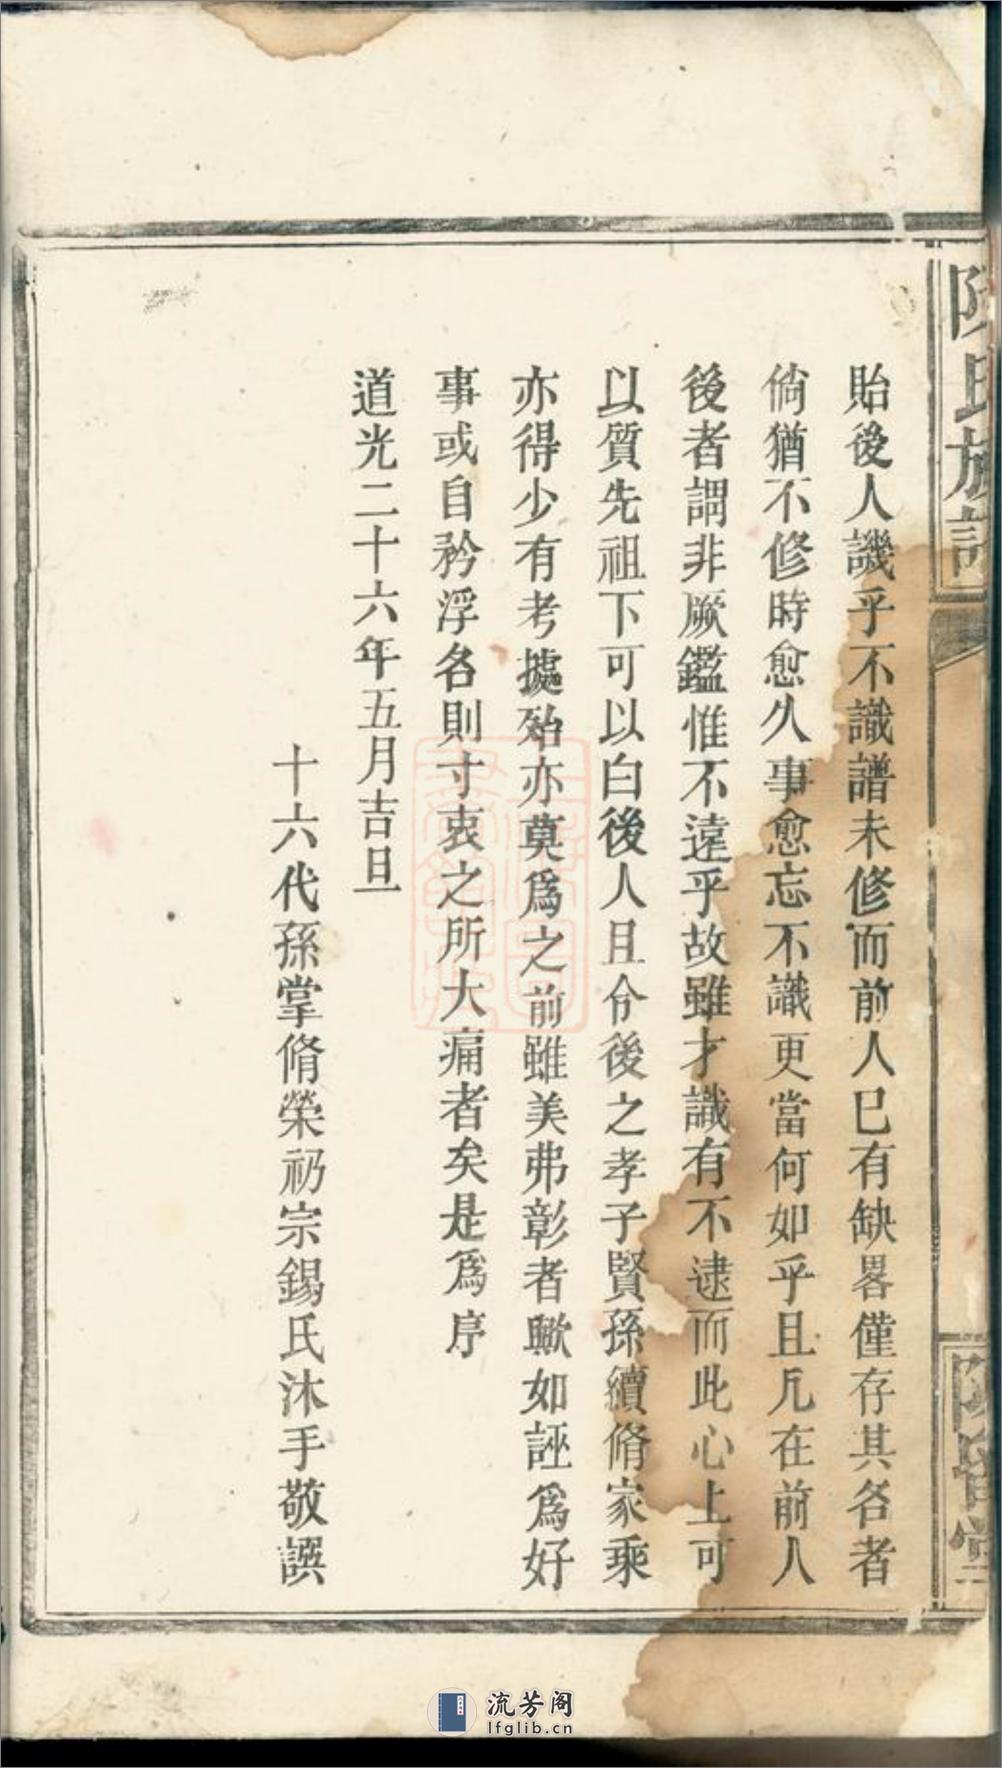 貽後人譏乎不識譜未修而前人已有缺畧僅存其名者
倘猶不修時愈久事愈忘不識更當何如乎且凡在前人
後者謂非厥鑑惟不遠乎故雖才識有不逮而此心上可
以質先祖下可以白後人且令後之孝子賢孫續脩家乘
亦得少有考據殆亦莫爲之前雖美弗彰者歟如誣爲好
事或自矜浮名則寸衷之所大痛者矣是爲序
道光二十六年五月吉旦
十六代孫掌脩榮礽宗錫氏沐手敬譔
流芳阁
lfglib.cn